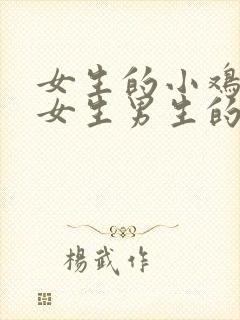 女生的小鸡
女生男生的
楊武作